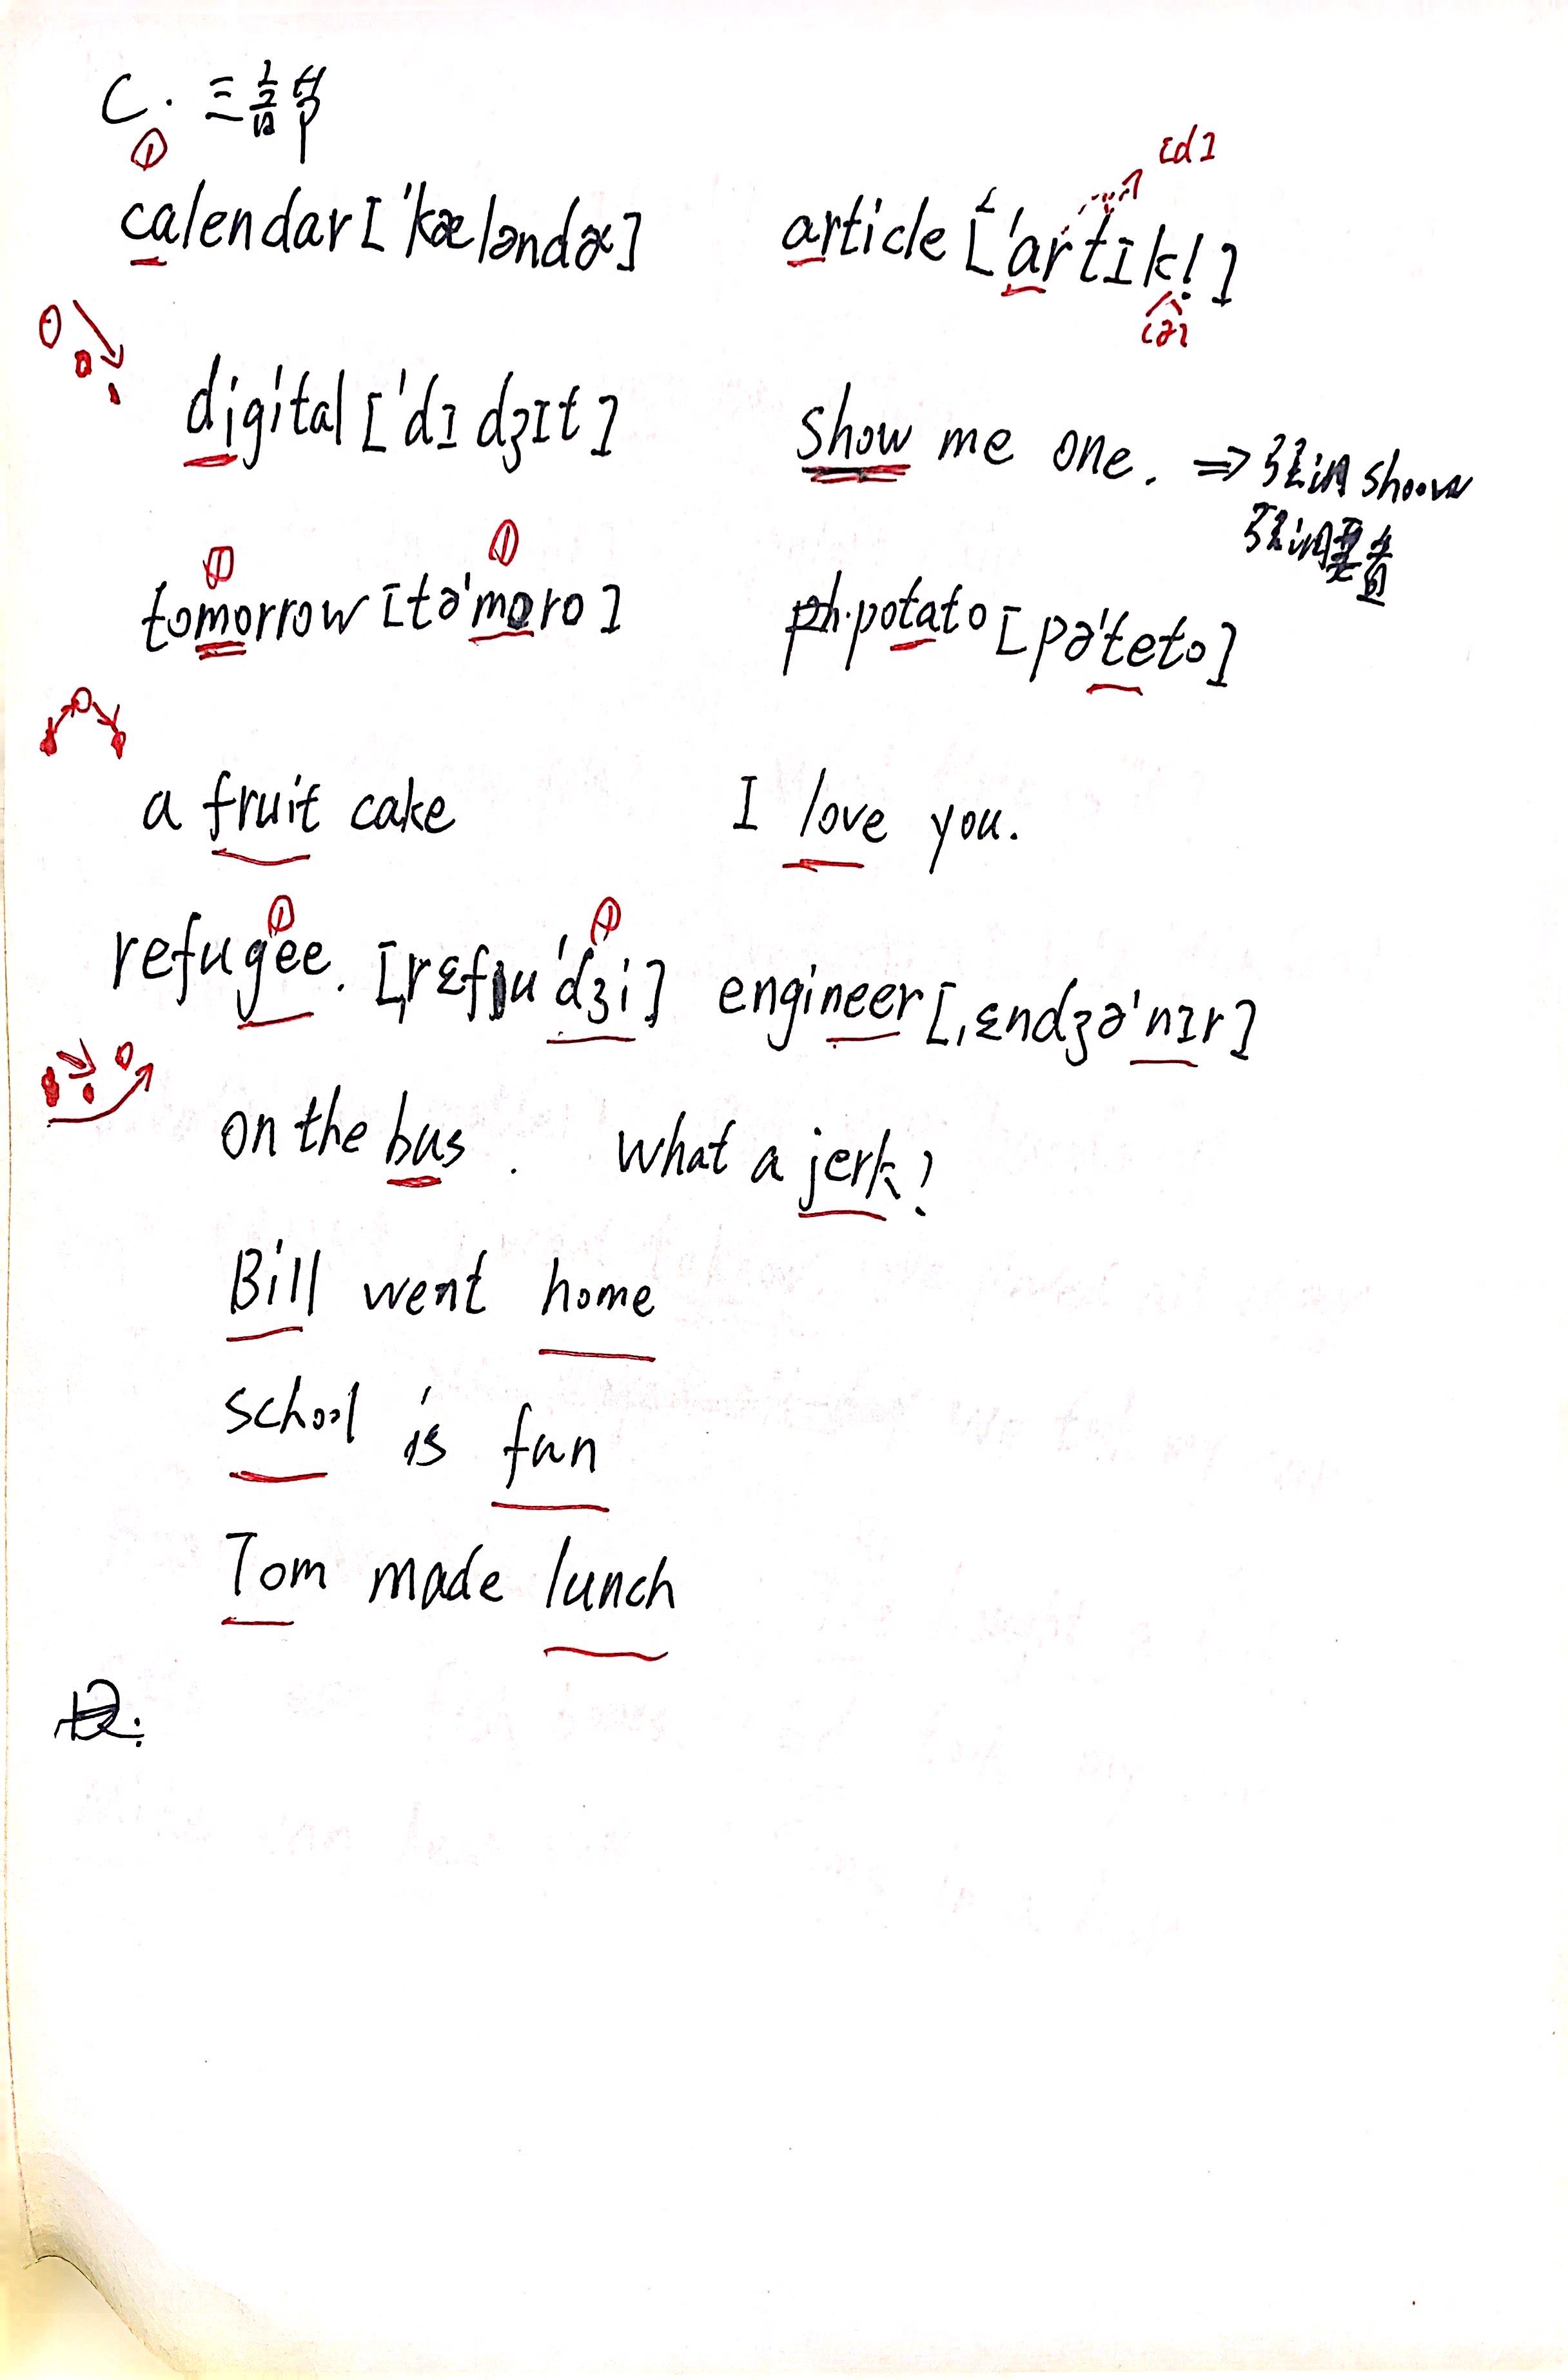 C. 三音节
calendar ['kæləndɚ] article ['artɪkl̩] [d]
[ə]
digital ['dɪdʒɪt] show me one. ⇒ 强调 show
强调重音
tomorrow [tə'moro] potato [pə'teto]
a fruit cake I love you.
refugee. [ˌrɛfju'dʒi] engineer [ˌɛndʒə'nɪr]
on the bus. What a jerk!
Bill went home
school is fun
Tom made lunch